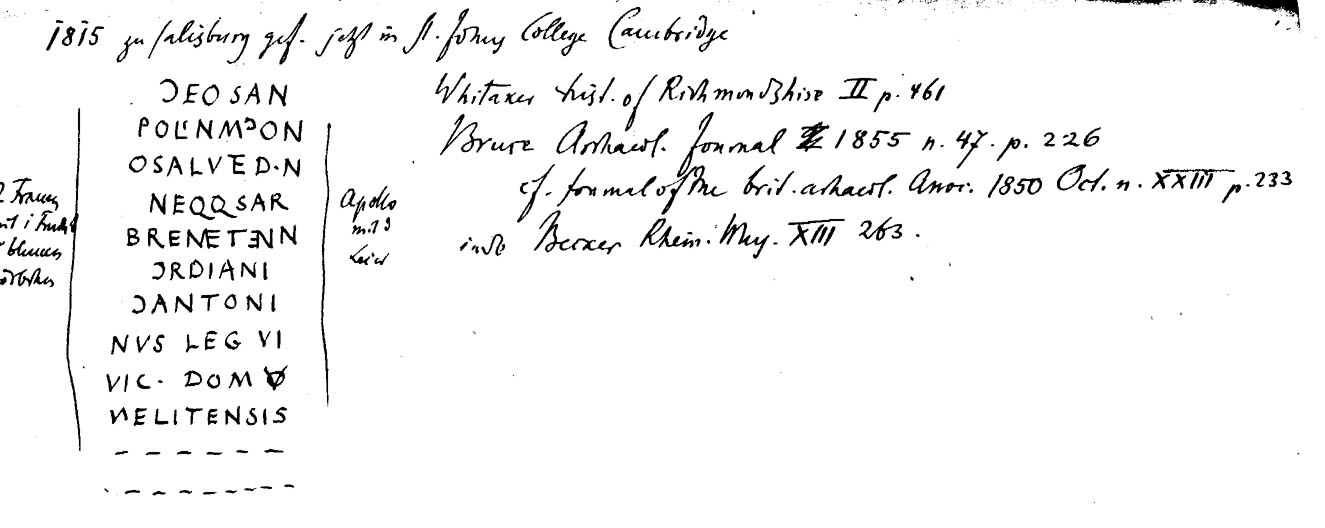 1815 zu Salisbury gef. jetzt in St. Johns College Cambridge
ƆEO SAN
POLINMƆON
OSALVED·N
NEQQSAR
BRENETƎNN
ƆRDIANI
ƆANTONI
NVS LEG VI
VIC· DOM
MELITENSIS
2 Frauen
mit
blumen
Apollo
mit d
Leier
Whitaker hist. of Richmondshire II p. 461
Bruce Archaeol. Journal 1855 n. 47. p. 226
cf. Journal of the brit. archaeol. Assoc. 1850 Oct. n. XXIII p. 233
inde Becker Rhein. Mus. XIII 263.